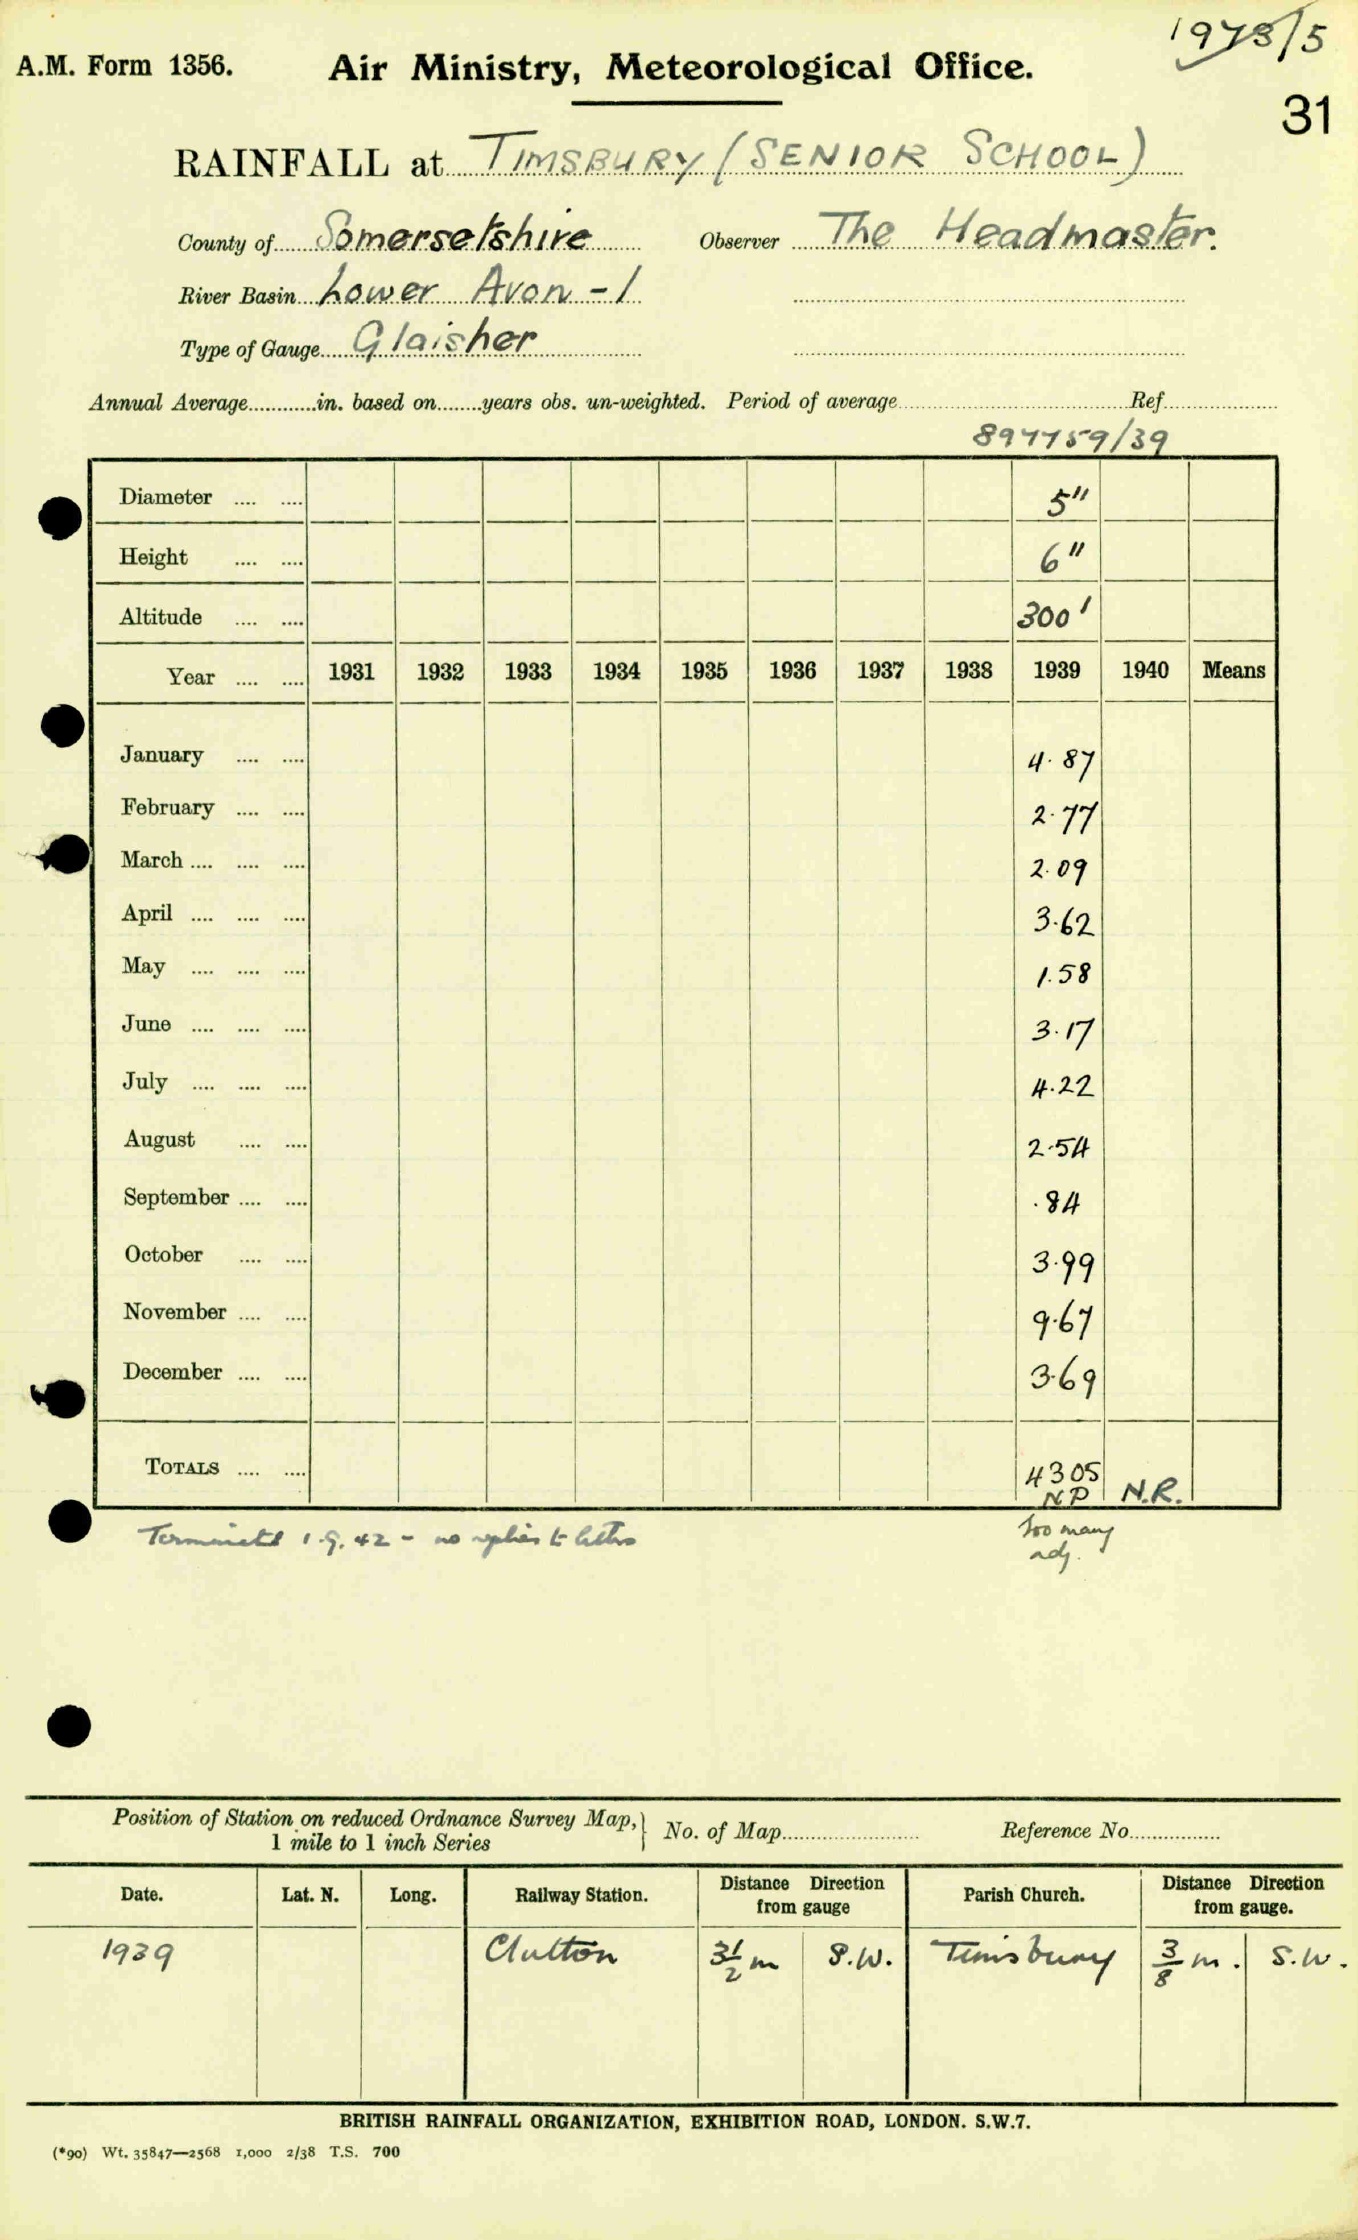 1973/5
A.M. Form 1356. Air Ministry, Meteorological Office.
31
RAINFALL at TIMSBURY (SENIOR SCHOOL)
County of Somersetshire Observer The Headmaster.
River Basin Lower Avon - 1
Type of Gauge Glaisher
Annual Average in. based on years obs. un-weighted. Period of average Ref.
897759/39
Diameter 5"
Height 6"
Altitude 300'
Year 1931 1932 1933 1934 1935 1936 1937 1938 1939 1940 Means
January 4.87
February 2.77
March 2.09
April 3.62
May 1.58
June 3.17
July 4.22
August 2.54
September .84
October 3.99
November 9.67
December 3.69
TOTALS 4305
NP N.R.
Terminated 1.9.42 - no replies to letters
Too many
adj.
Position of Station on reduced Ordnance Survey Map, } No. of Map Reference No.
1 mile to 1 inch Series
Date. Lat. N. Long. Railway Station. Distance Direction from gauge Parish Church. Distance Direction from gauge.
1939 Clutton 3 1/2 m S.W. Timsbury 3/8 m. S.W.
BRITISH RAINFALL ORGANIZATION, EXHIBITION ROAD, LONDON. S.W.7.
(*90) Wt. 35847—2568 1,000 2/38 T.S. 700